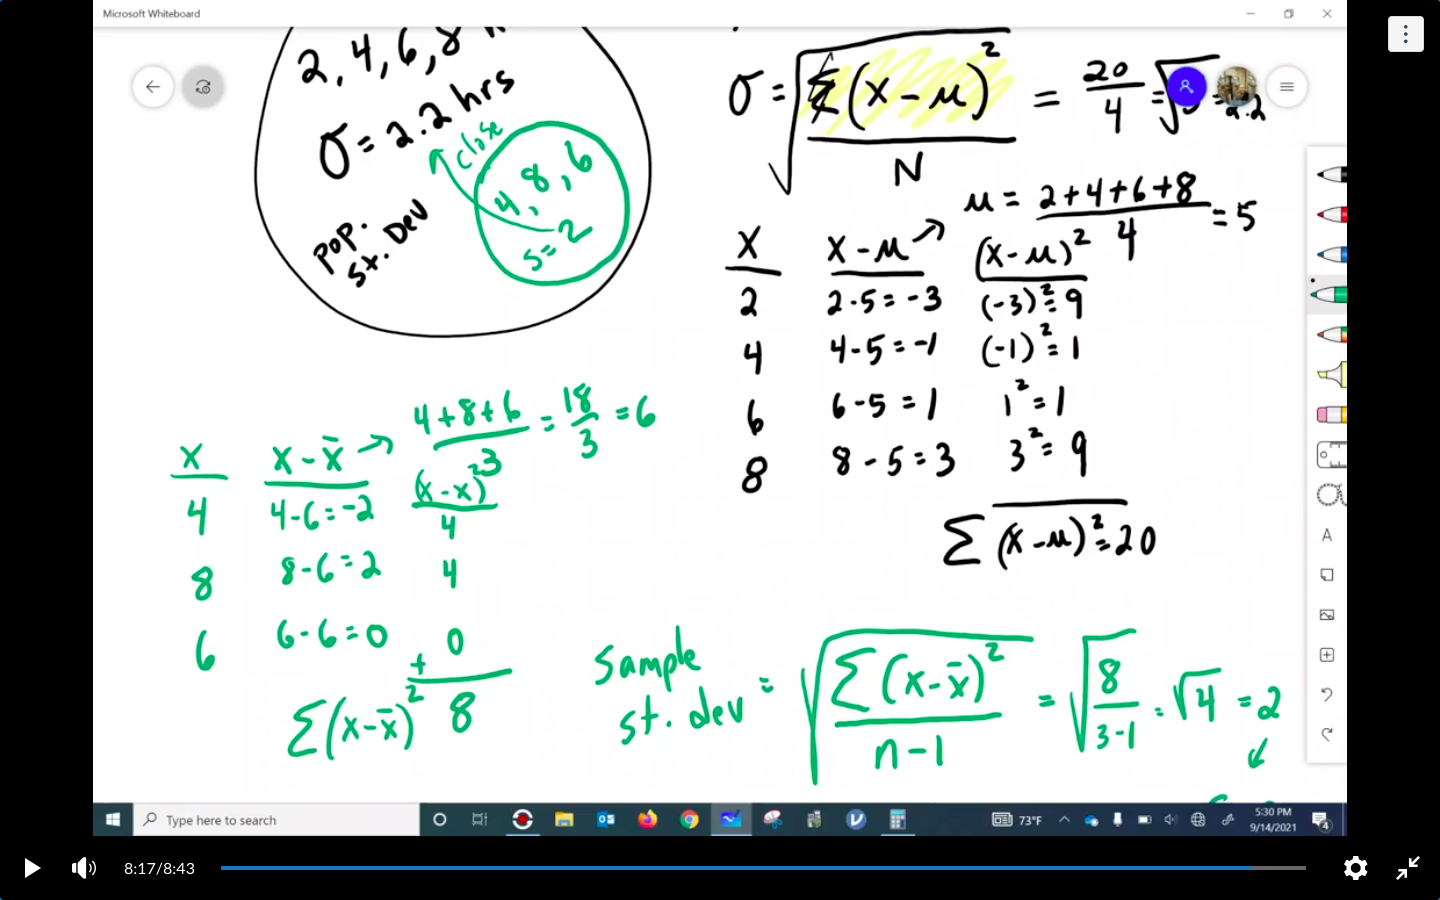 Microsoft Whiteboard
2, 4, 6, 8
σ = 2.2 hrs
close
4, 8, 6
s = 2
pop.
st. Dev
σ = √(Σ(x-μ)²/N) = 20/4 = √5 = 2.2
μ = (2+4+6+8)/4 = 5
x x-μ → (x-μ)²
2 2-5=-3 (-3)²=9
4 4-5=-1 (-1)²=1
6 6-5=1 1²=1
8 8-5=3 3²=9
Σ(x-μ)²=20
(4+8+6)/3 = 18/3 = 6
x x-x̄ → (x-x)²
4 4-6=-2 4
8 8-6=2 4
6 6-6=0 + 0
Σ(x-x̄)² 8
Sample
st. dev = √(Σ(x-x̄)²/(n-1)) = √(8/(3-1)) = √4 = 2
Type here to search
73°F
5:30 PM
9/14/2021
4
8:17/8:43